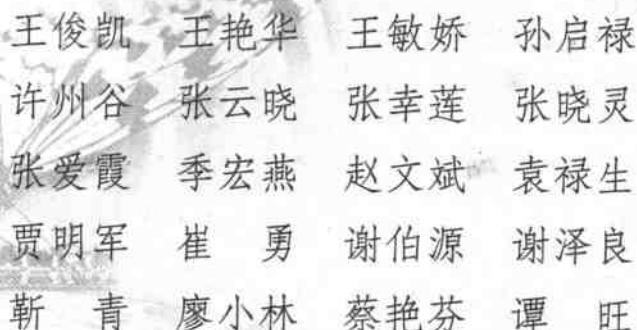 王俊凯 王艳华 王敏娇 孙启禄
许州谷 张云晓 张幸莲 张晓灵
张爱霞 季宏燕 赵文斌 袁禄生
贾明军 崔 勇 谢伯源 谢泽良
靳 青 廖小林 蔡艳芬 谭 旺